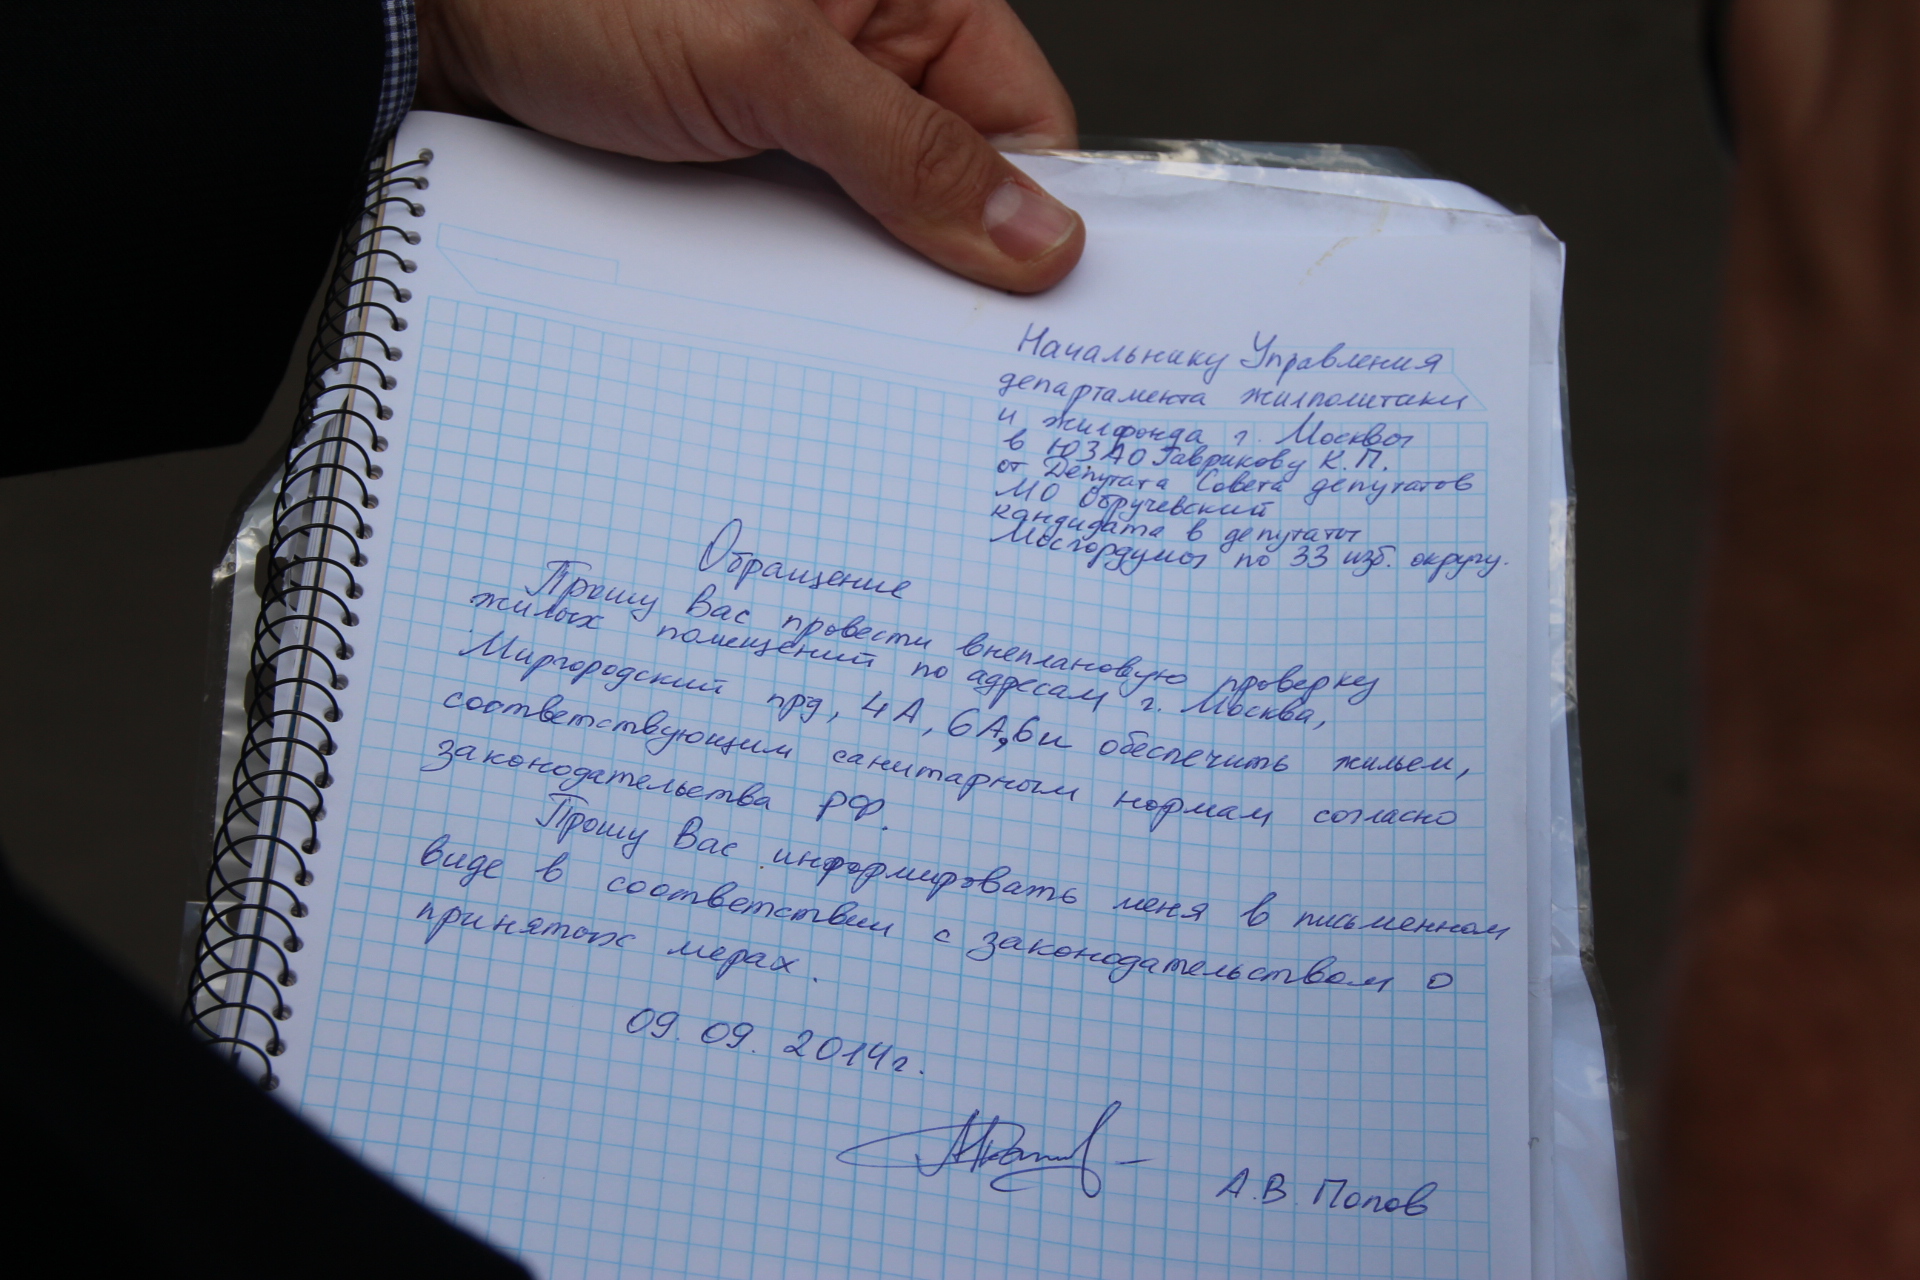 Начальнику Управления
департамента жилполитики
и жилфонда г. Москвы
в ЮЗАО Гаврикову К.П.
от Депутата Совета депутатов
МО Обручевский
кандидата в депутаты
Мосгордумы по 33 изб. округу.
Обращение
Прошу Вас провести внеплановую проверку
жилых помещений по адресам г. Москва,
Миргородский прд, 4А, 6А, 6 и обеспечить жильем,
соответствующим санитарным нормам согласно
законодательства РФ.
Прошу Вас информировать меня в письменном
виде в соответствии с законодательством о
принятых мерах.
09.09.2014г.
А.В. Попов